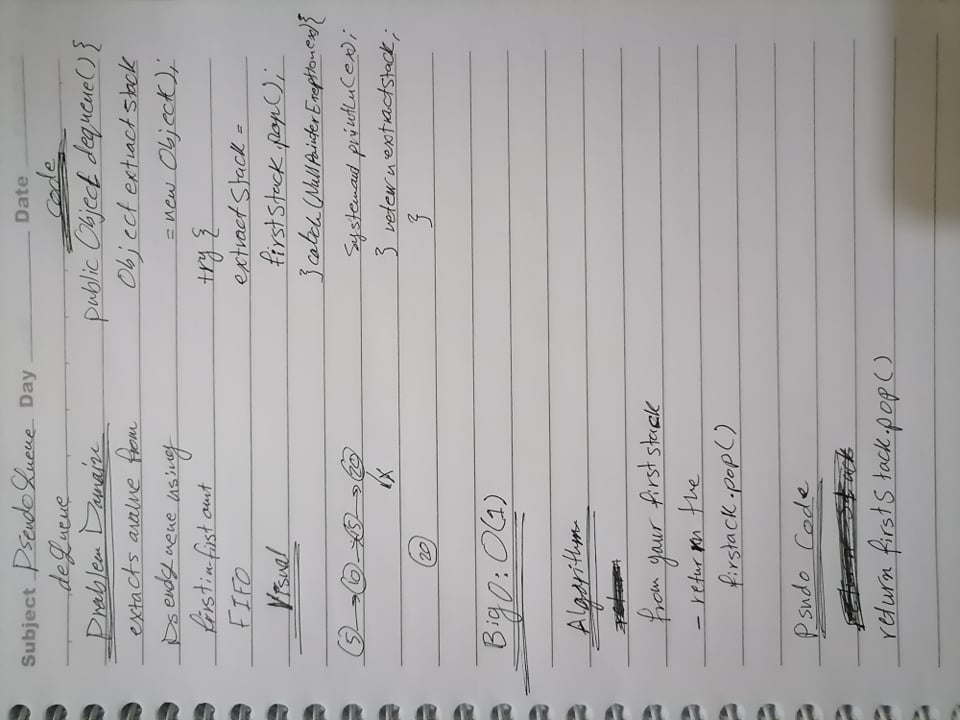 Subject PseudoQueue Day Date
deQueue
Problem Domain
extacts avalue from
Psendquene using
first in first out
FIFO
Visual
(5) → (10) → (15) → (20)
X
(20)
Big O: O(1)
Algorithm
from your first stack
- return the
firstack.pop()
Psudo Code
return firstStack.pop()
Code
public Object dequeue() {
Object extract stack
= new Object();
try {
extract Stack =
first Stack.pop();
} catch (NullPointerEneptionex) {
Systemout println(ex);
} return extractstack;
}